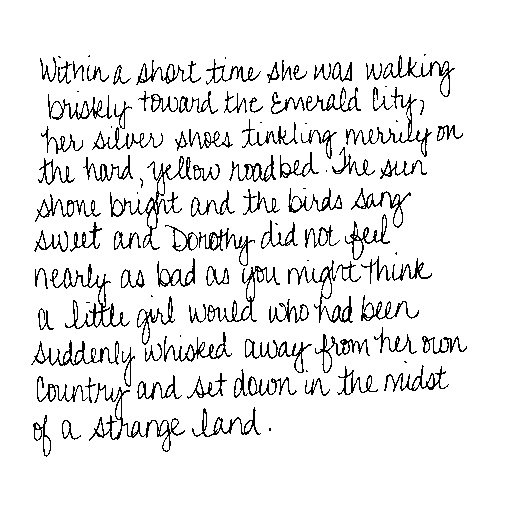 Within a short time she was walking
briskly toward the Emerald City,
her silver shoes tinkling merrily on
the hard, yellow roadbed. The sun
shone bright and the birds sang
sweet and Dorothy did not feel
nearly as bad as you might think
a little girl would who had been
suddenly whisked away from her own
country and set down in the midst
of a strange land.